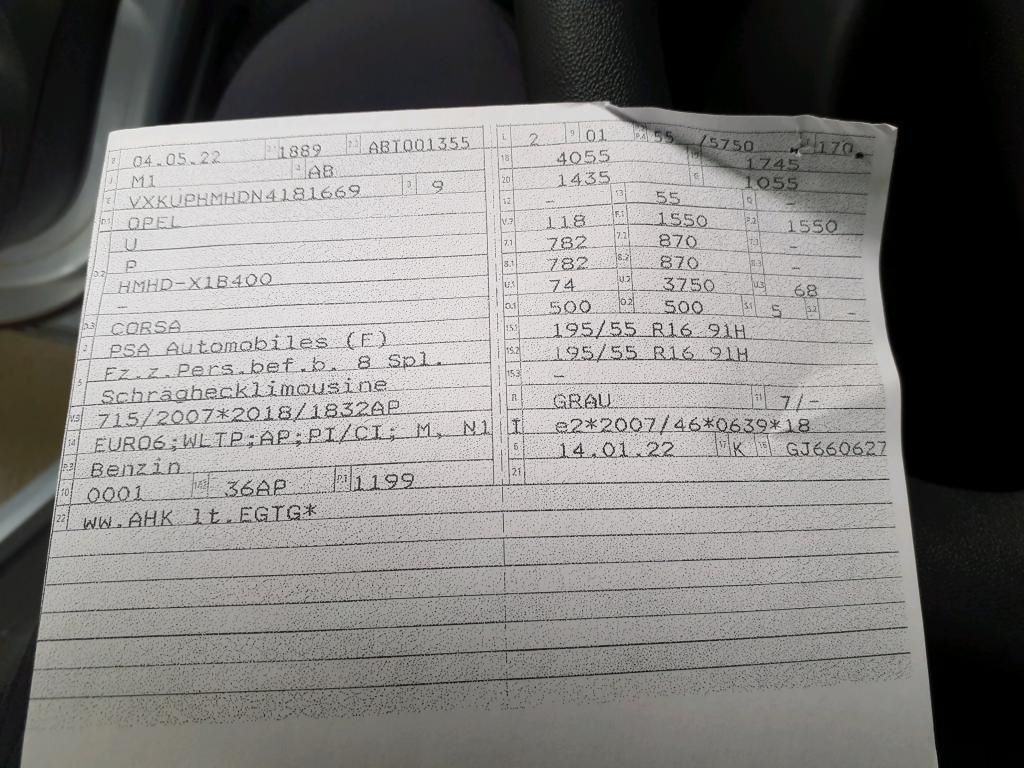 B 04.05.22 2.1 1889 2.2 ABT001355
J M1 4 AB
E VXKUPHMHDN4181669 3 9
D.1 OPEL
U
D.2 P
HMHD-X1B400
-
D.3 CORSA
2 PSA Automobiles (F)
5 Fz.z.Pers.bef.b. 8 Spl.
Schräghecklimousine
V.9 715/2007*2018/1832AP
14 EURO6;WLTP;AP;PI/CI; M, N1
P.3 Benzin
10 0001 14.1 36AP P.1 1199
22 ww.AHK lt.EGTG*
L 2 9 01 P.2 55 /5750 170
18 4055 19 1745
20 1435 G 1055
12 - 13 55 Q -
V.7 118 F.1 1550 F.2 1550
7.1 782 7.2 870 7.3 -
8.1 782 8.2 870 8.3 -
U.1 74 U.2 3750 U.3 68
O.1 500 O.2 500 S.1 5 S.2 -
15.1 195/55 R16 91H
15.2 195/55 R16 91H
15.3 -
R GRAU 11 7/-
K e2*2007/46*0639*18
6 14.01.22 17 K 16 GJ660627
21